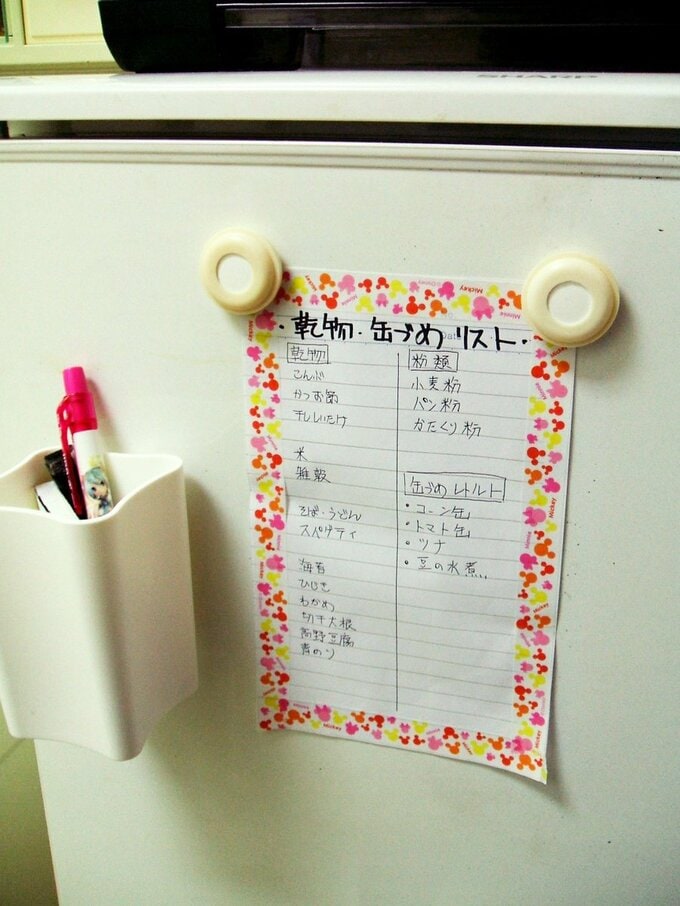 SHARP
・乾物・缶づめリスト・
乾物
こんぶ
かつお節
干ししいたけ
米
雑穀
そば・うどん
スパゲティ
海苔
ひじき
わかめ
切干大根
高野豆腐
青のり
粉類
小麦粉
パン粉
かたくり粉
缶づめ レトルト
・コーン缶
・トマト缶
・ツナ
・豆の水煮